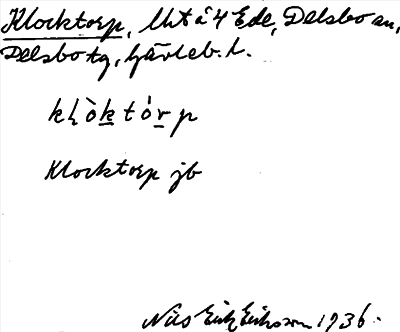 Klocktorp, lht å 4 Ede, Delsbo sn,
Delsbo tg, Gävleb. l.
kḷòk tórp
Klocktorp jb
Nils Erik Eriksson 1936.